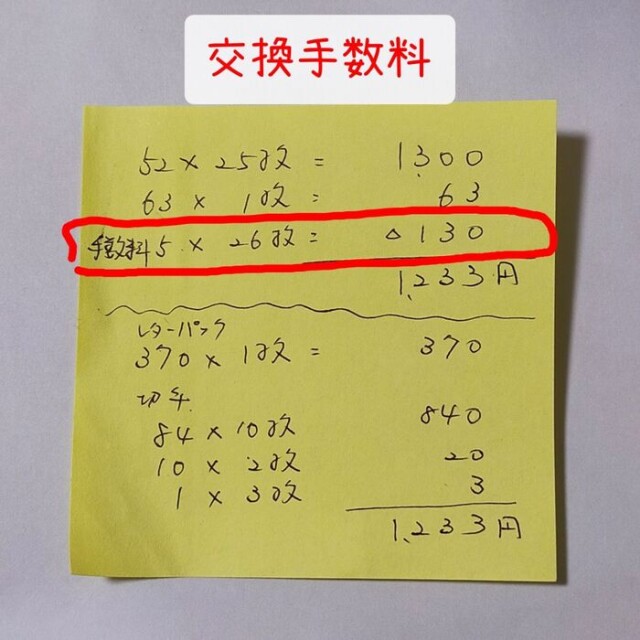 交換手数料
52 × 25枚 = 1,300
63 × 1枚 = 63
手数料 5 × 26枚 = △130
1,233円
レターパック
370 × 1枚 = 370
切手
84 × 10枚 840
10 × 2枚 20
1 × 3枚 3
1,233円